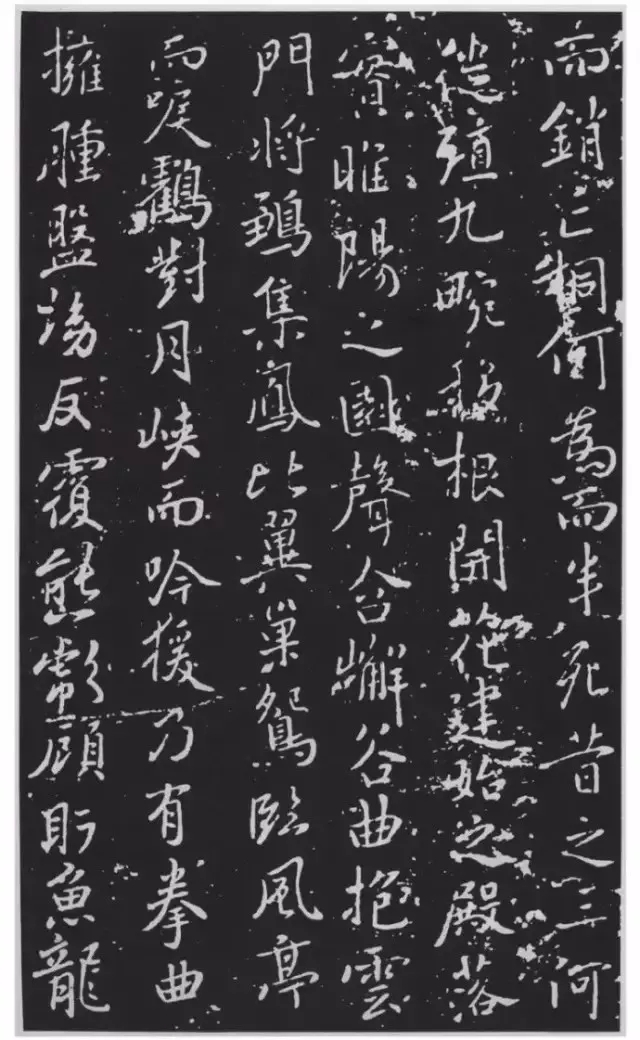 而銷亡桐何為而半死昔之三河
徙殖九畹移根開花建始之殿落
實睢陽之園聲含嶰谷曲抱雲
門將鶵集鳳比翼巢鴛臨風亭
而唳鸖對月峽而吟猨乃有拳曲
擁腫盤坳反覆熊彪顧盼魚龍